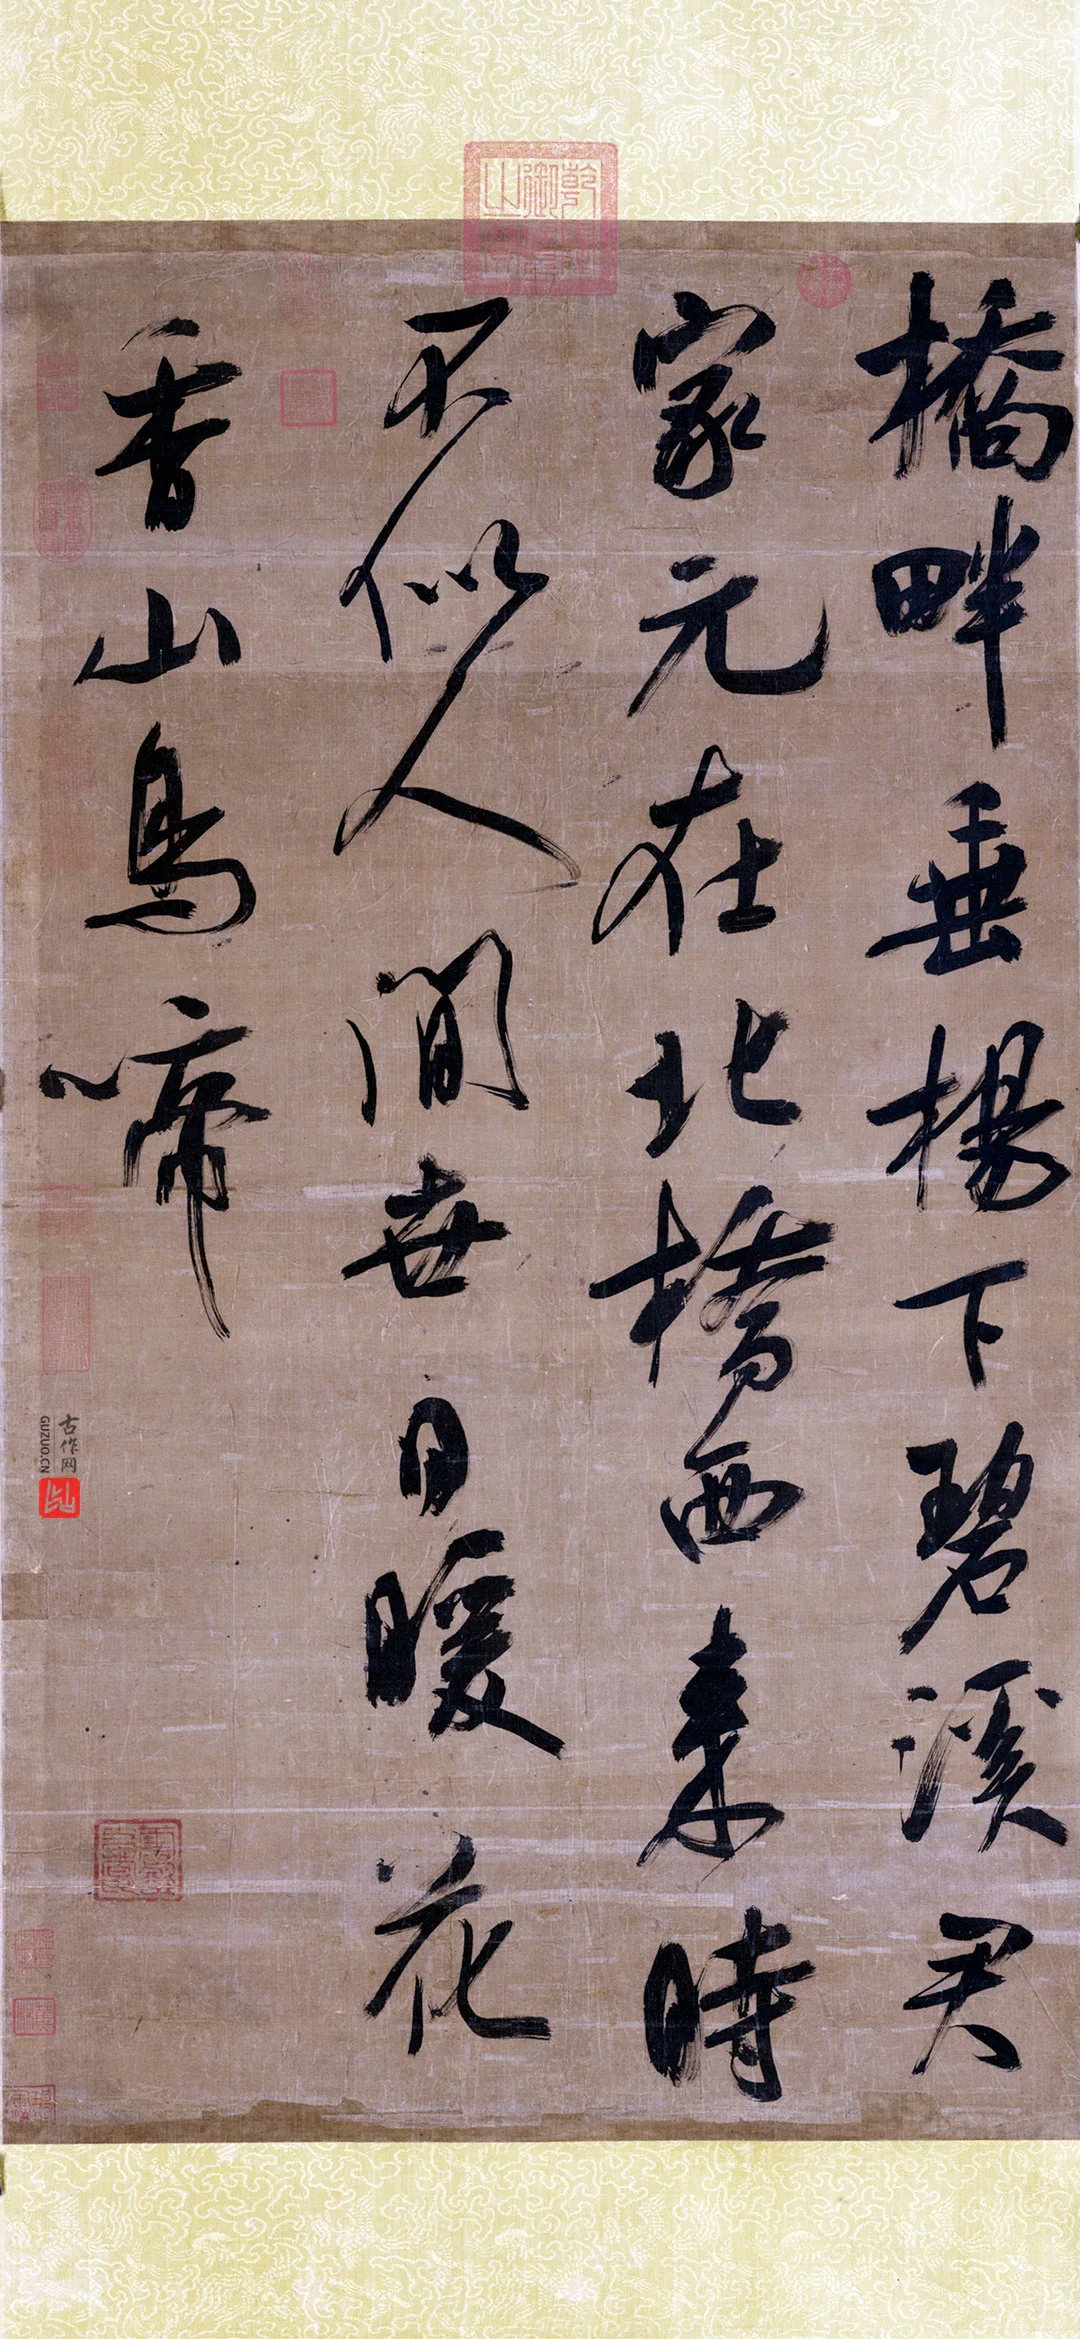 橋畔垂楊下碧溪君
家元在北橋西来時
不似人間世日暖花
香山鳥啼
古作网
GUZUO.CN